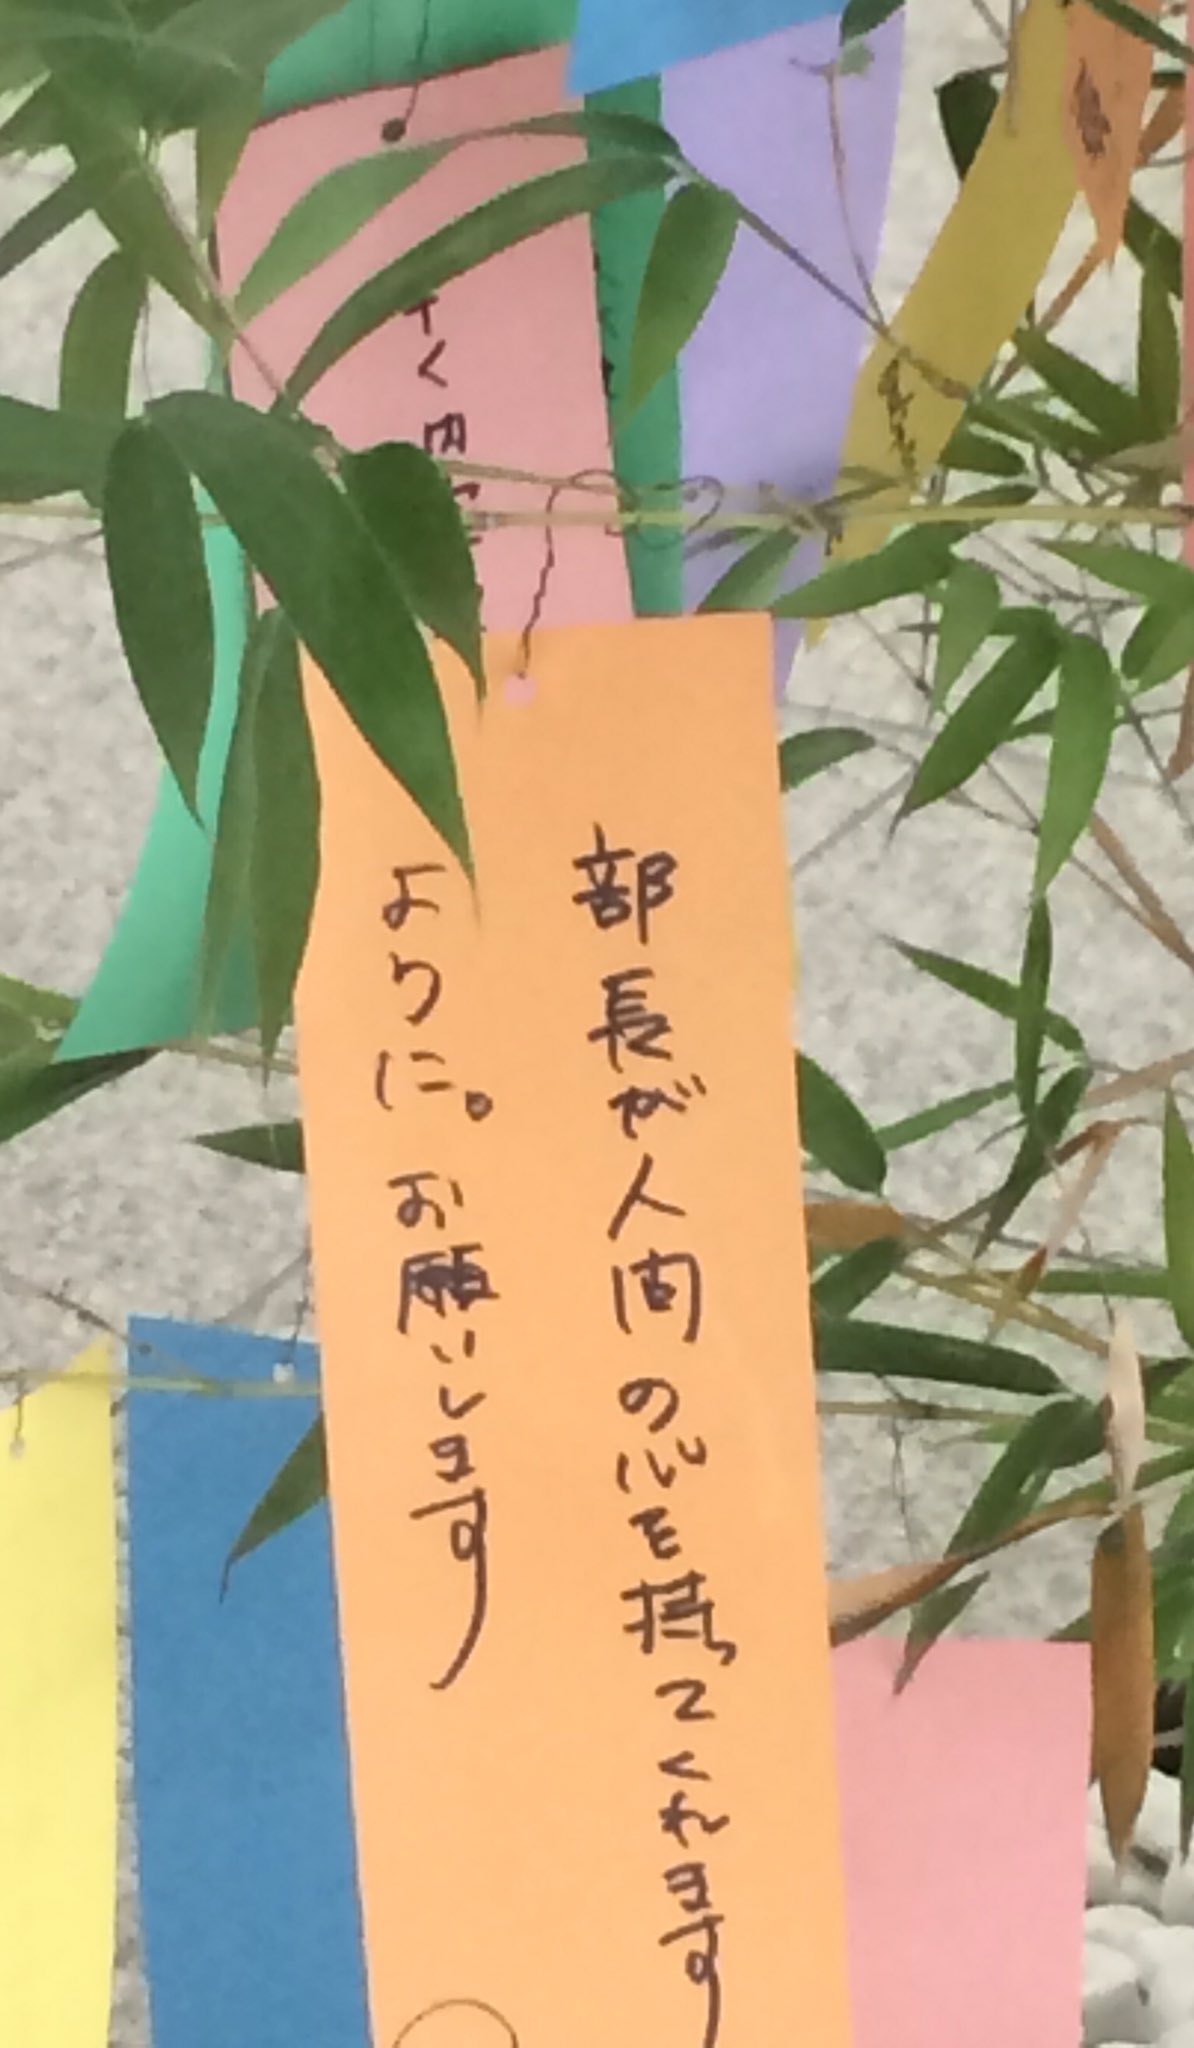 部長が人間の心を持ってくれます
よりに。お願いします
すく内定